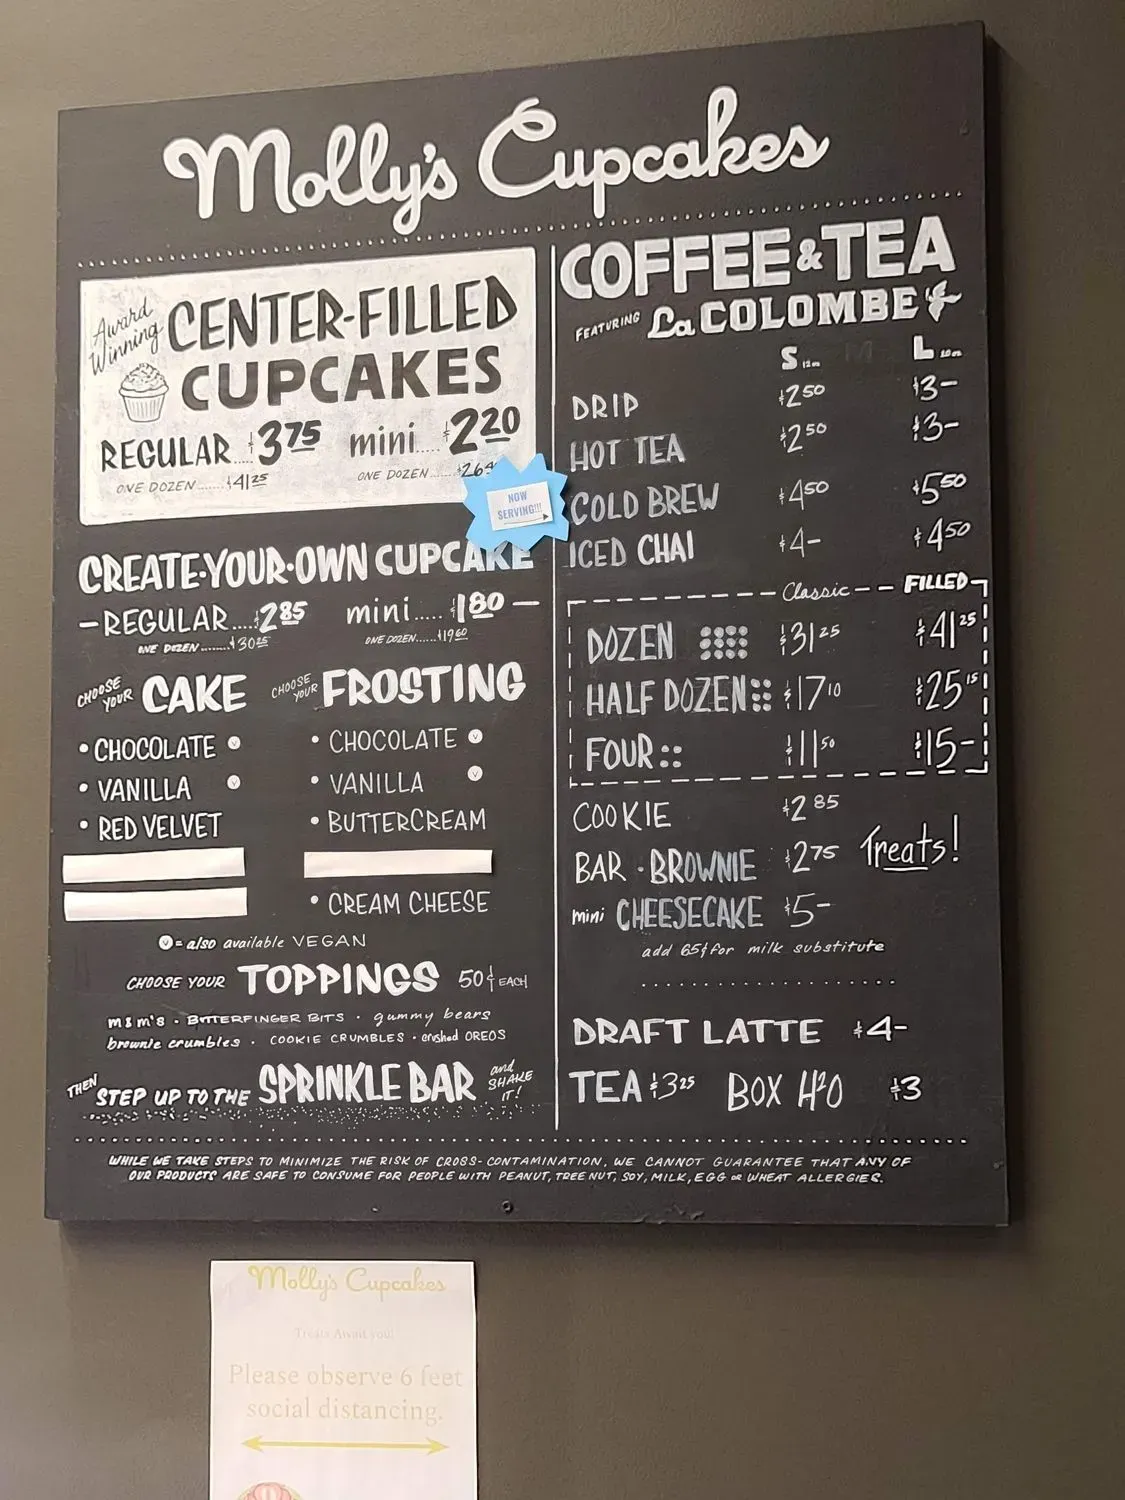 Molly's Cupcakes
Award
Winning
CENTER-FILLED
CUPCAKES
REGULAR....$3.75 mini....$2.20
ONE DOZEN.......$41.25 ONE DOZEN.......$26.4
NOW
SERVING!!!
CREATE·YOUR·OWN CUPCAKE
-REGULAR....$2.85 mini....$1.80-
ONE DOZEN.......$30.25 ONE DOZEN......$19.60
CHOOSE YOUR CAKE
• CHOCOLATE V
• VANILLA V
• RED VELVET
CHOOSE YOUR FROSTING
• CHOCOLATE V
• VANILLA V
• BUTTERCREAM
• CREAM CHEESE
V = also available VEGAN
CHOOSE YOUR TOPPINGS 50¢ EACH
m&m's · BUTTERFINGER BITS · gummy bears
brownie crumbles · COOKIE CRUMBLES · crushed OREOS
THEN STEP UP TO THE SPRINKLE BAR and SHAKE IT!
COFFEE & TEA
FEATURING La COLOMBE
S 12oz M L
DRIP $2.50 $3-
HOT TEA $2.50 $3-
COLD BREW $4.50 $5.50
ICED CHAI $4- $4.50
Classic FILLED
DOZEN $31.25 $41.25
HALF DOZEN $17.10 $25.15
FOUR $11.50 $15-
COOKIE $2.85
BAR · BROWNIE $2.75 Treats!
mini CHEESECAKE $5-
add 65¢ for milk substitute
DRAFT LATTE $4-
TEA $3.25 BOX H2O $3
WHILE WE TAKE STEPS TO MINIMIZE THE RISK OF CROSS-CONTAMINATION, WE CANNOT GUARANTEE THAT ANY OF
OUR PRODUCTS ARE SAFE TO CONSUME FOR PEOPLE WITH PEANUT, TREE NUT, SOY, MILK, EGG OR WHEAT ALLERGIES.
Molly's Cupcakes
Treats Await you!
Please observe 6 feet
social distancing.